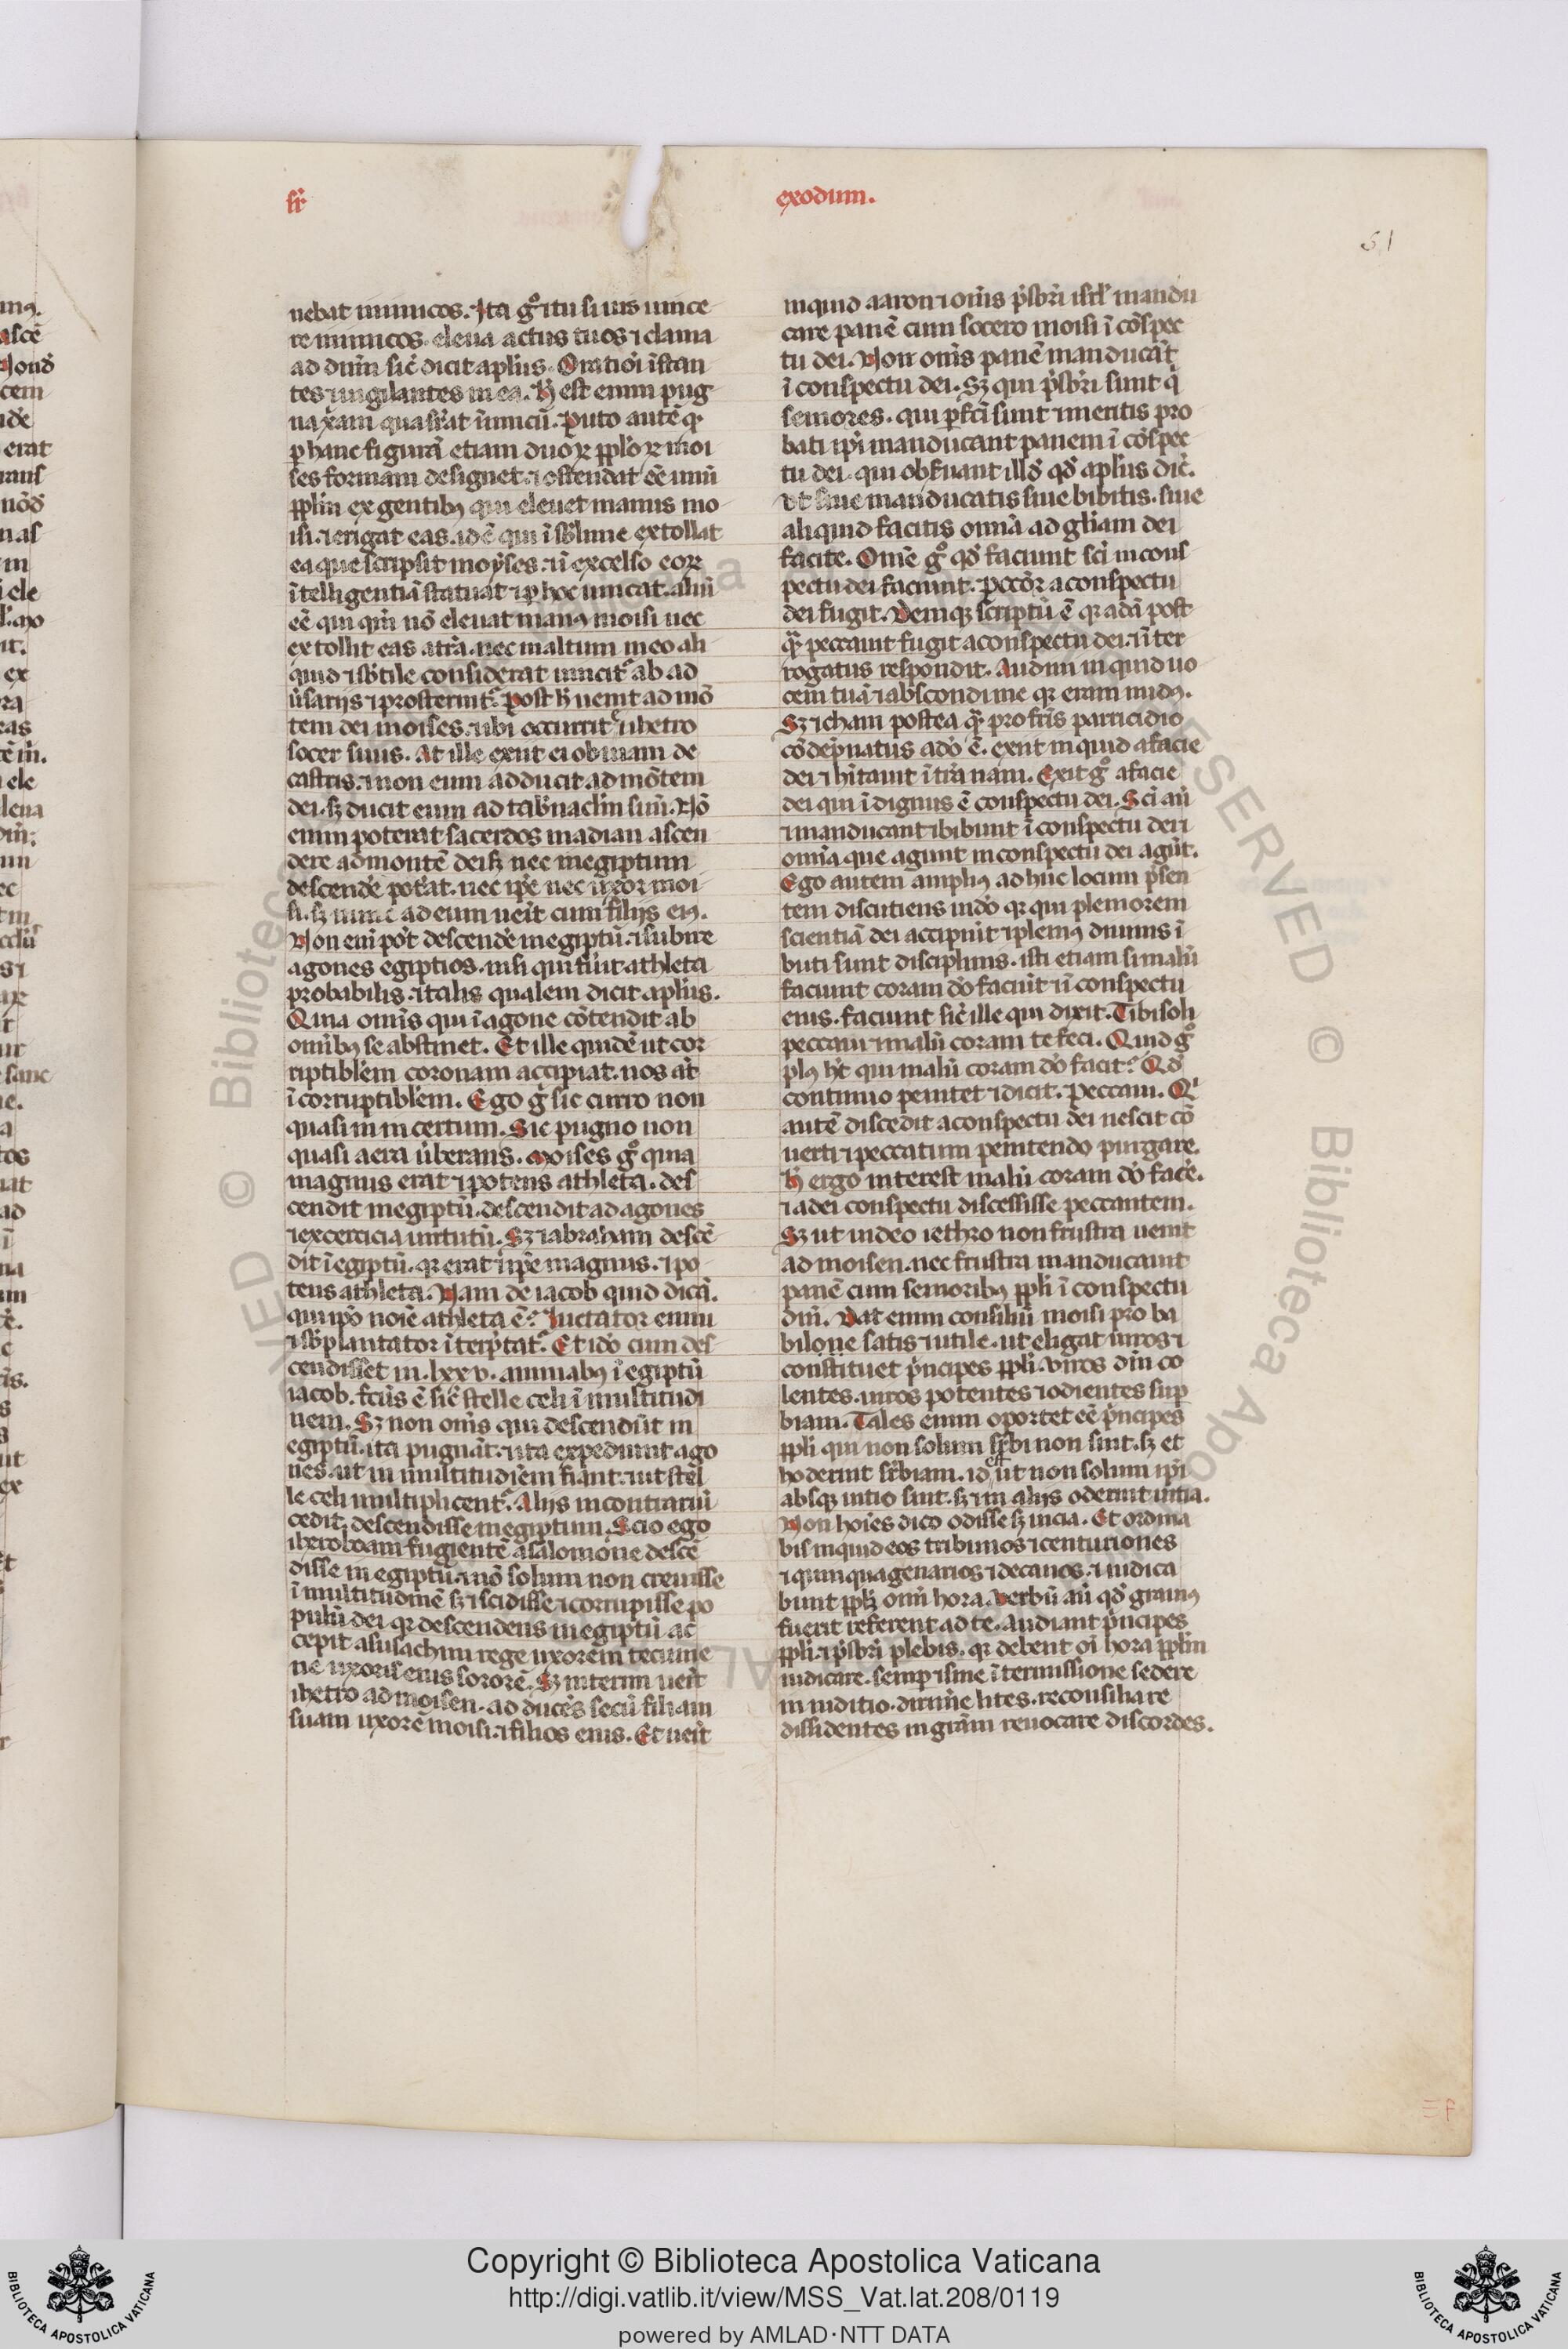 sr̄
exodum.
51
uebat inimicos. Ita gͦ ⁊ tu si uis uince
re inimicos eleua actus tuos ⁊ clama
ad dn̄m sic̄ dicit apl̄us. Orationī īstan
tes ⁊ uigilantes in ea. h̄ est enim pug
na
ꝑ hanc figurā etiam duoꝝ ppl̄oꝝ moi
ses formam designet. ⁊ ostendat eē unū
ppl̄m ex gentibꝫ qui eleuet manus mo
isi. ⁊ erigat eas. id ē qui ī sb̄lime extollat
ea que scripsit moyses. ⁊ ī excelso eoꝝ
ītelligentiā statuat ⁊ ꝑ hoc uincat. aliū
eē qui qm̄ nō eleuat manꝰ moisi nec
extollit eas a tr̄a. nec in altum in eo ali
quid ⁊ sb̄tile considerat uincit᷑ ab ad
ūsariis ⁊ prosternit᷑. Post h̄ uenit ad mō
tem dei moises. ⁊ ubi occurrit ei ihetro
socer suus. At ille exiit ei obuiam de
castris. ⁊ non eum adducit ad mōtem
dei. sꝫ ducit eum ad tab̄naclm̄ suū. Nō
enim poterat sacerdos madian ascen
dere ad montē dei sꝫ nec in egiptum
descendē pot̄at. nec ip̄e nec uxor moi
si. sꝫ nunc ad eum uēit cum filiis eiꝰ.
Non enī pōt descendē in egiptū. ⁊ subire
agones egiptios. nisi qui fūit athleta
probabilis. ⁊ talis qualem dicit apl̄us.
Quia omīs qui ī agone cōtendit ab
omībꝫ se abstinet. Et ille quidē ut cor
riptiblēm coronam accipiat. nos āt
ī corruptiblēm. Ego ḡ sic curro non
quasi in incertum. Sic pugno non
quasi aera ūberans. Moises gͦ quia
magnus erat ⁊ potens athleta. des
cendit in egiptū. descendit ad agones
⁊ excercicia uirtutū. Sꝫ ⁊ abraham descē
dit ī egiptū. qr erat ⁊ ip̄e magnus. ⁊ po
tens athleta. Nam de iacob quid dicā.
qui ip̄o noīe athleta ē? Luctator enim
⁊ sb̄plantator īterp̄tat᷑. Et idō cum des
cendisset in. lxxv. animabꝫ ī egiptū
iacob. fc̄us ē sic̄ stelle celi ī multitudi
nem. Sꝫ non omīs qui descendūt in
egiptū. ita pugnāt. ⁊ ita expediunt ago
nes. ut in multitudīem fiant. ⁊ ut stel
le celi multiplicent᷑. Aliis in contrariū
cedit. descendisse in egiptum. Scio ego
iheroboam fugientē a salomone descē
disse in egiptū. ⁊ nō solum non creuisse
ī multitudinē sꝫ ⁊ scidisse ⁊ corrupisse po
pulū dei qr descendens in egiptū ac
cepit a susachim rege uxorem tecuine
ne uxoris eius sororē. Sꝫ interim uēit
ihetro ad moisen. adducēs secū filiam
suam uxorē moisi. ⁊ filios eius. Et uēit
inquid aaron ⁊ om̄s p̄sbri isrl̄ mandu
care panē cum socero moisi ī cōspec
tu dei. Non om̄s panē manducāt
ī conspectu dei. Sꝫ qui p̄sbri sunt q̄
seniores. qui ꝑfc̄i sunt ⁊ meritis pro
bati ip̄i manducant panem ī cōspec
tu dei. qui obsēruant illḋ qḋ apl̄us dic̄.
ut siue manducatis siue bibitis. siue
aliquid facitis omīa ad gl̄iam dei
facite. Omē gͦ qḋ faciunt sc̄i in cons
pectu dei faciunt. Peccōr a conspectu
dei fugit. Deniqꝫ scriptū ē qr adā post
q̄ꝫ peccauit fugit a conspectu dei. ⁊ īter
rogatus respondit. Audiui inquid uo
cem tuā ⁊ abscondi me qr eram nudꝰ.
Sꝫ ⁊ chaim postea q̄ꝫ pro frīs parricidio
cōdēpnatus a dō ē. exiit inquid a facie
dei ⁊ hītauit ī tr̄a naim. Exit gͦ a facie
dei qui īdignus ē conspectu dei. Sc̄i aū
⁊ manducant ⁊ bibunt ī conspectu dei ⁊
omīa que agunt in conspectu dei agūt.
Ego autem amplīꝰ ad hūc locum p̄sen
tem discutiens uideo qr qui pleniorem
scientiā dei accipiūt ⁊ pleniꝰ diuinis ī
buti sunt disciplinis. isti etiam si malū
faciunt coram dō faciūt ⁊ ī conspectu
eius. faciunt sic̄ ille qui dixit. Tibi soli
peccaui ⁊ malū coram te feci. Quid gͦ
plꝰ ht̄ qui malū coram dō facit? Qḋ
continuo penitet ⁊ dicit. Peccaui. Qⁱ
autē discedit a conspectu dei nescit cō
uerti ⁊ peccatum penitendo purgare.
h̄ ergo interest malū coram dō facē.
⁊ a dei conspectu discessisse peccantem.
Sꝫ ut uideo iethro non frustra uenit
ad moisen. nec frustra manducauit
panē cum senioribꝫ ppl̄i ī conspectu
dn̄i. Dat enim consiliū moisi pro ba
bilone satis ⁊ utile. ut eligat uiros ⁊
constituet p̄ncipes ppl̄i. uiros dm̄ co
lentes. uiros potentes ⁊ odientes sup
biam. Tales enim oportet eē p̄ncipes
ppl̄i qui non solum sꝑbi non sint. sꝫ et
hoderint sꝑbiam. id est ut non solum ip̄i
absqꝫ uitio sint. sꝫ ⁊ in aliis oderint uitia.
Non hoīes dico odisse sꝫ uicia. Et ordina
bis inquid eos tribunos ⁊ centuriones
⁊ quinquagenarios ⁊ decanos. ⁊ iudica
bunt ppl̄m omī hora. Uerbū aū qḋ grauiꝰ
fuerit referent ad te. Audiant p̄ncipes
ppl̄i. ⁊ p̄sbri plebis. qr debent oī hora ppl̄m
iudicare. semꝑ ⁊ sine ītermissione sedere
in iuditio. dirimē lites. reconsiliare
dissidentes in grām reuocare discordes.
Copyright © Biblioteca Apostolica Vaticana
http://digi.vatlib.it/view/MSS_Vat.lat.208/0119
powered by AMLAD·NTT DATA
BIBLIOTECA APOSTOLICA VATICANA
BIBLIOTECA APOSTOLICA VATICANA